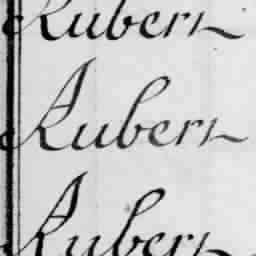 Aubert
Aubert
Aubert